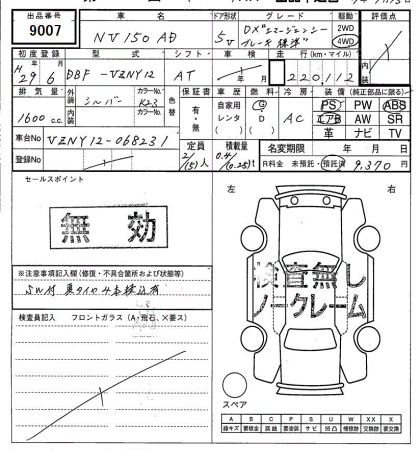 出品番号 車名 ドア形状 グレード 駆動 評価点
9007 NV150 AD 5V DX"エマージェンシーブレーキ標準" 2WD 4WD
初度登録 型式 シフト 車検 走行(km・マイル) 装備(純正部品に限る)
H29.6 DBF-VZNY12 AT 年 月 220,112 PS PW ABS
排気量 外装 シルバー カラーNo. K23 色替 保証書 車歴 燃料 冷房 エアB AW SR
1600cc 内装 カラーNo. 有・無 自家用 G AC 革 ナビ TV
レンタ D
車台No VZNY12-068231 定員 積載量 名変期限 年 月 日
登録No 2/(5)人 0.4/(0.25)t R料金 未預託・預託済 9,370円
セールスポイント
無効
左 右
検査無し
ノークレーム
※注意事項記入欄(修復・不具合箇所および状態等)
SW付 夏タイヤ4本積込有
検査員記入 フロントガラス(A・飛石、×要ス)
スペア
A B C P S U W X XX
線キズ 要板金 腐蝕 要塗装 サビ 凹凸 補修跡 交換跡 要交換